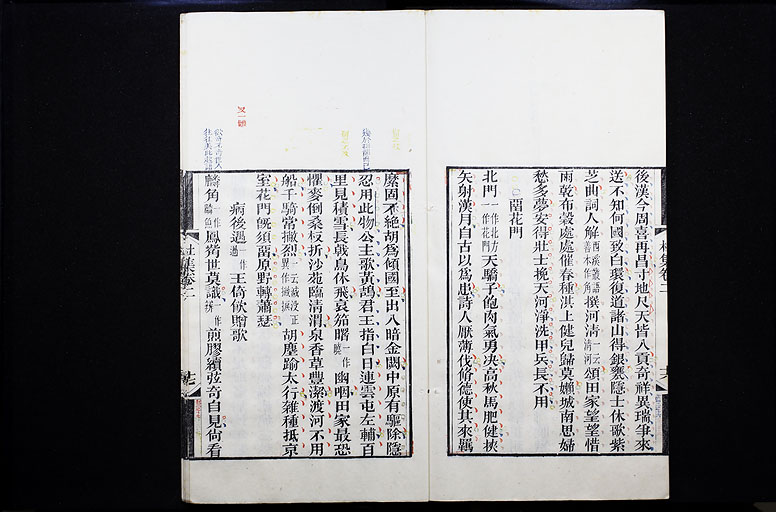 後漢今周喜再昌寸地尺天皆入貢奇祥異瑞爭來
送不知何國致白環復道諸山得銀甕隱士休歌紫
芝曲詞人解撰河清一云清河頌田家望望惜
雨乾布穀處處催春種淇上健兒歸莫嬾城南思婦
愁多夢安得壯士挽天河淨洗甲兵長不用
留花門
北門一作北方一作花門天驕子飽肉氣勇决高秋馬肥健挾
矢射漢月自古以為患詩人厭薄伐脩德使其來羈
縻固不絶胡為傾國至出入暗金闕中原有驅除隱
忍用此物公主歌黃鵠君王指白日連雲屯左輔百
里見積雪長戟鳥休飛哀笳曙一作幽咽田家最恐
懼麥倒桑枝折沙苑臨清渭泉香草豐潔渡河不用
船千騎常撇烈胡塵踰太行雜種抵京
室花門旣須留原野轉蕭瑟
病後過一作王倚飲贈歌
麟角鳳觜世莫識一作煎膠續弦奇自見尙看
杜集卷二